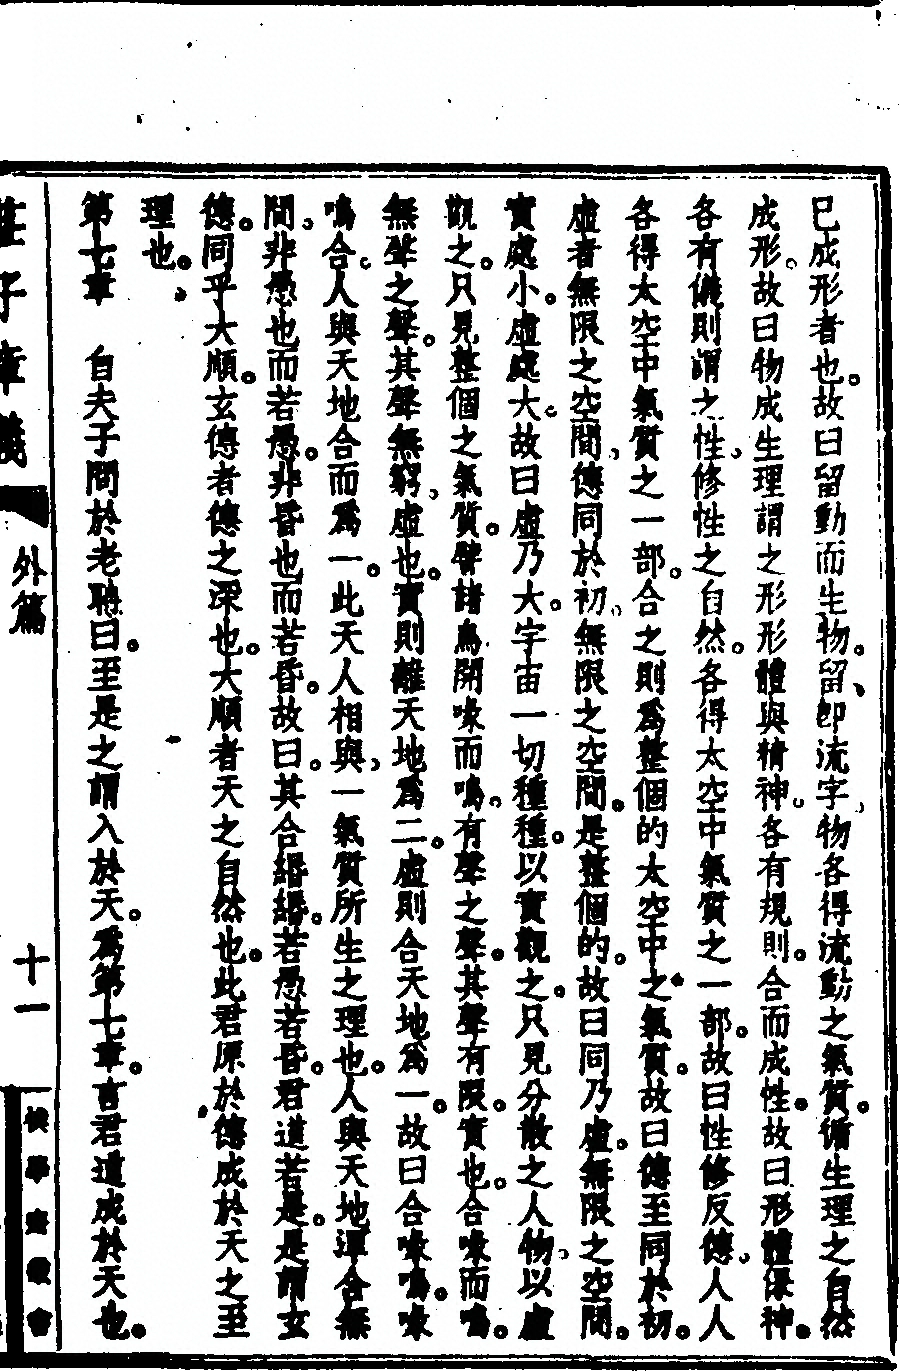 已成形者也。故曰留動而生物。留、卽流字、物各得流動之氣質。循生理之自然
成形。故曰物成生理謂之形形體與精神。各有規則。合而成性。故曰形體保神。
各有儀則謂之性、修性之自然。各得太空中氣質之一部。故曰性修反德、人人
各得太空中氣質之一部。合之則爲整個的太空中之氣質。故曰德至同於初。
虛者無限之空間、德同於初、無限之空間。是整個的。故曰同乃虛。無限之空間。
實處小。虛處大。故曰虛乃大。宇宙一切種種。以實觀之。只見分散之人物、以虛
觀之。只見整個之氣質。譬諸鳥開喙而鳴。有聲之聲。其聲有限。實也。合喙而鳴。
無聲之聲。其聲無窮、虛也。實則離天地爲二。虛則合天地爲一。故曰合喙鳴。喙
鳴合。人與天地合而爲一。此天人相與、一氣質所生之理也。人與天地渾合無
間、非愚也而若愚。非昏也而若昏。故曰。其合緡緡。若愚若昏。君道若是。是謂玄
德。同乎大順。玄德者德之深也。大順者天之自然也。此君原於德成於天之至
理也。
第七章　自夫子問於老聃曰。至是之謂入於天。爲第七章。言君道成於天也。
莊子章義　外篇　十一